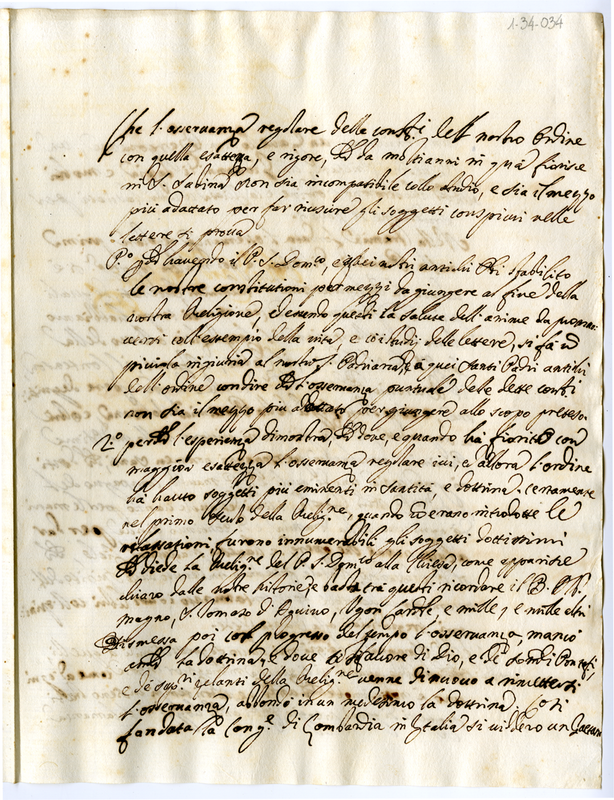 1-34-034
Che l'osservanza regolare delle constit.i del nostro Ordine
con quella esattezza, e rigore, che da molti anni in quà fiorisce
in S. Sabina non sia incompatibile collo studio, e sia il mezzo
più adattato per far riuscire gli soggetti conspicui nelle
lettere si prova
P.o perche havendo il P. S. Dom.co, e quei nostri antichi Padri stabilito
le nostre constitutioni per mezzi da giungere al fine della
nostra Religione, ed essendo questi la salute dell'anime da
coll'essempio della vita, e coi studij delle lettere, si fà
ingiuria al nostro S. Patriarca, e à quei Santi Padri antichi
dell'ordine con dire che l'osservanza puntuale delle dette
non sia il mezzo più adattato per giungere allo scopo preteso
2.o perche l'esperienza dimostra, che dove, e quando hà fiorito con
maggior esattezza l'osservanza regolare ivi, e allora l'ordine
hà hauto soggetti più eminenti in santità, e dottrina. certamente
nel primo secolo della Relig.ne, quando non erano introdotte le
relassationi furono innumerabili gli soggetti dottissimi
che diede la Relig.ne del P. S. Dom.co alla Chiesa, come apparisce
chiaro dalle nostre historie, e basta trà questi ricordare il B.
magno, S. Tomaso d'Aquino, Ugon card.e e mille, e mille altri
Dismessa poi col progresso del tempo l'osservanza, mancò
anche la dottrina, e dove à favore di Dio, e de' sommi Pontefi:
e de' zelanti della Relig.ne venne di nuovo a rimettersi
l'osservanza, abbondò in un medesimo la dottrina. Così
fondata la Cong.e di Lombardia in Italia si viddero un Gaetano